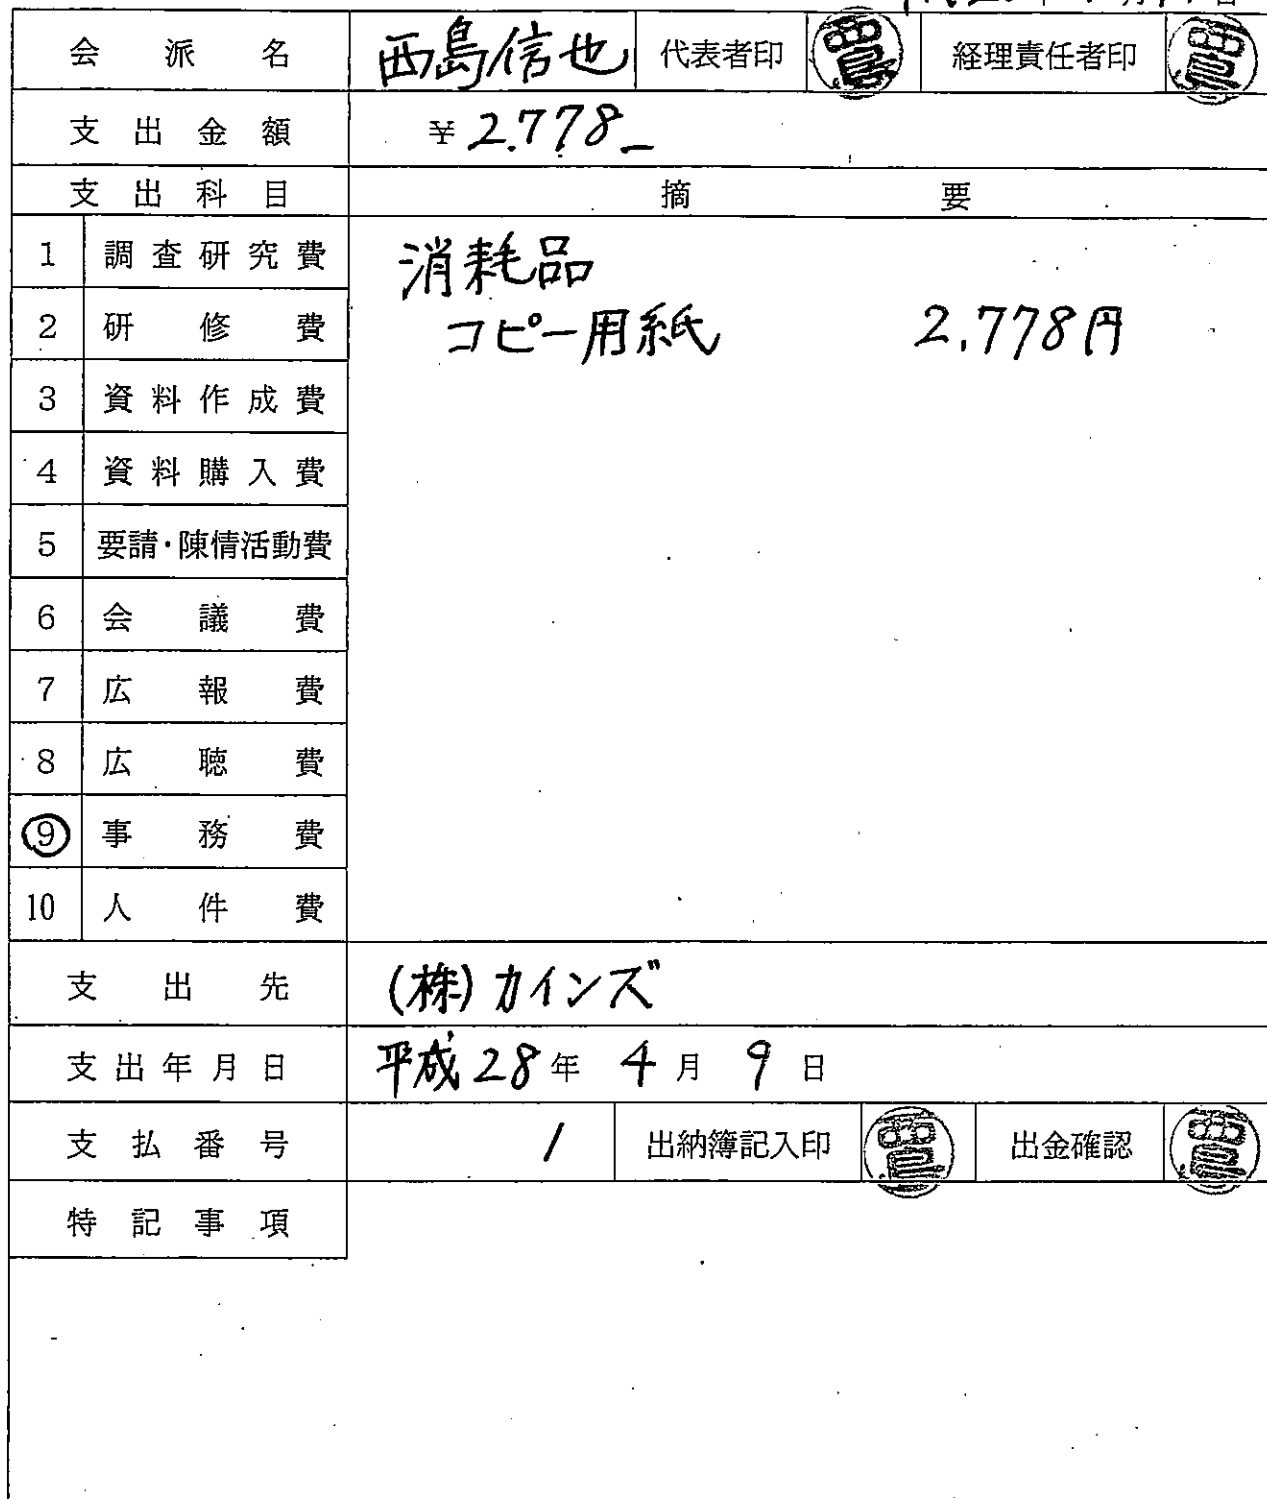 会派名 西島信也 代表者印 経理責任者印
支出金額 ¥2.778_
支出科目 摘要
1 調査研究費 消耗品
2 研修費 コピー用紙 2.778円
3 資料作成費
4 資料購入費
5 要請・陳情活動費
6 会議費
7 広報費
8 広聴費
9 事務費
10 人件費
支出先 (株)カインズ
支出年月日 平成28年4月9日
支払番号 1 出納簿記入印 出金確認
特記事項